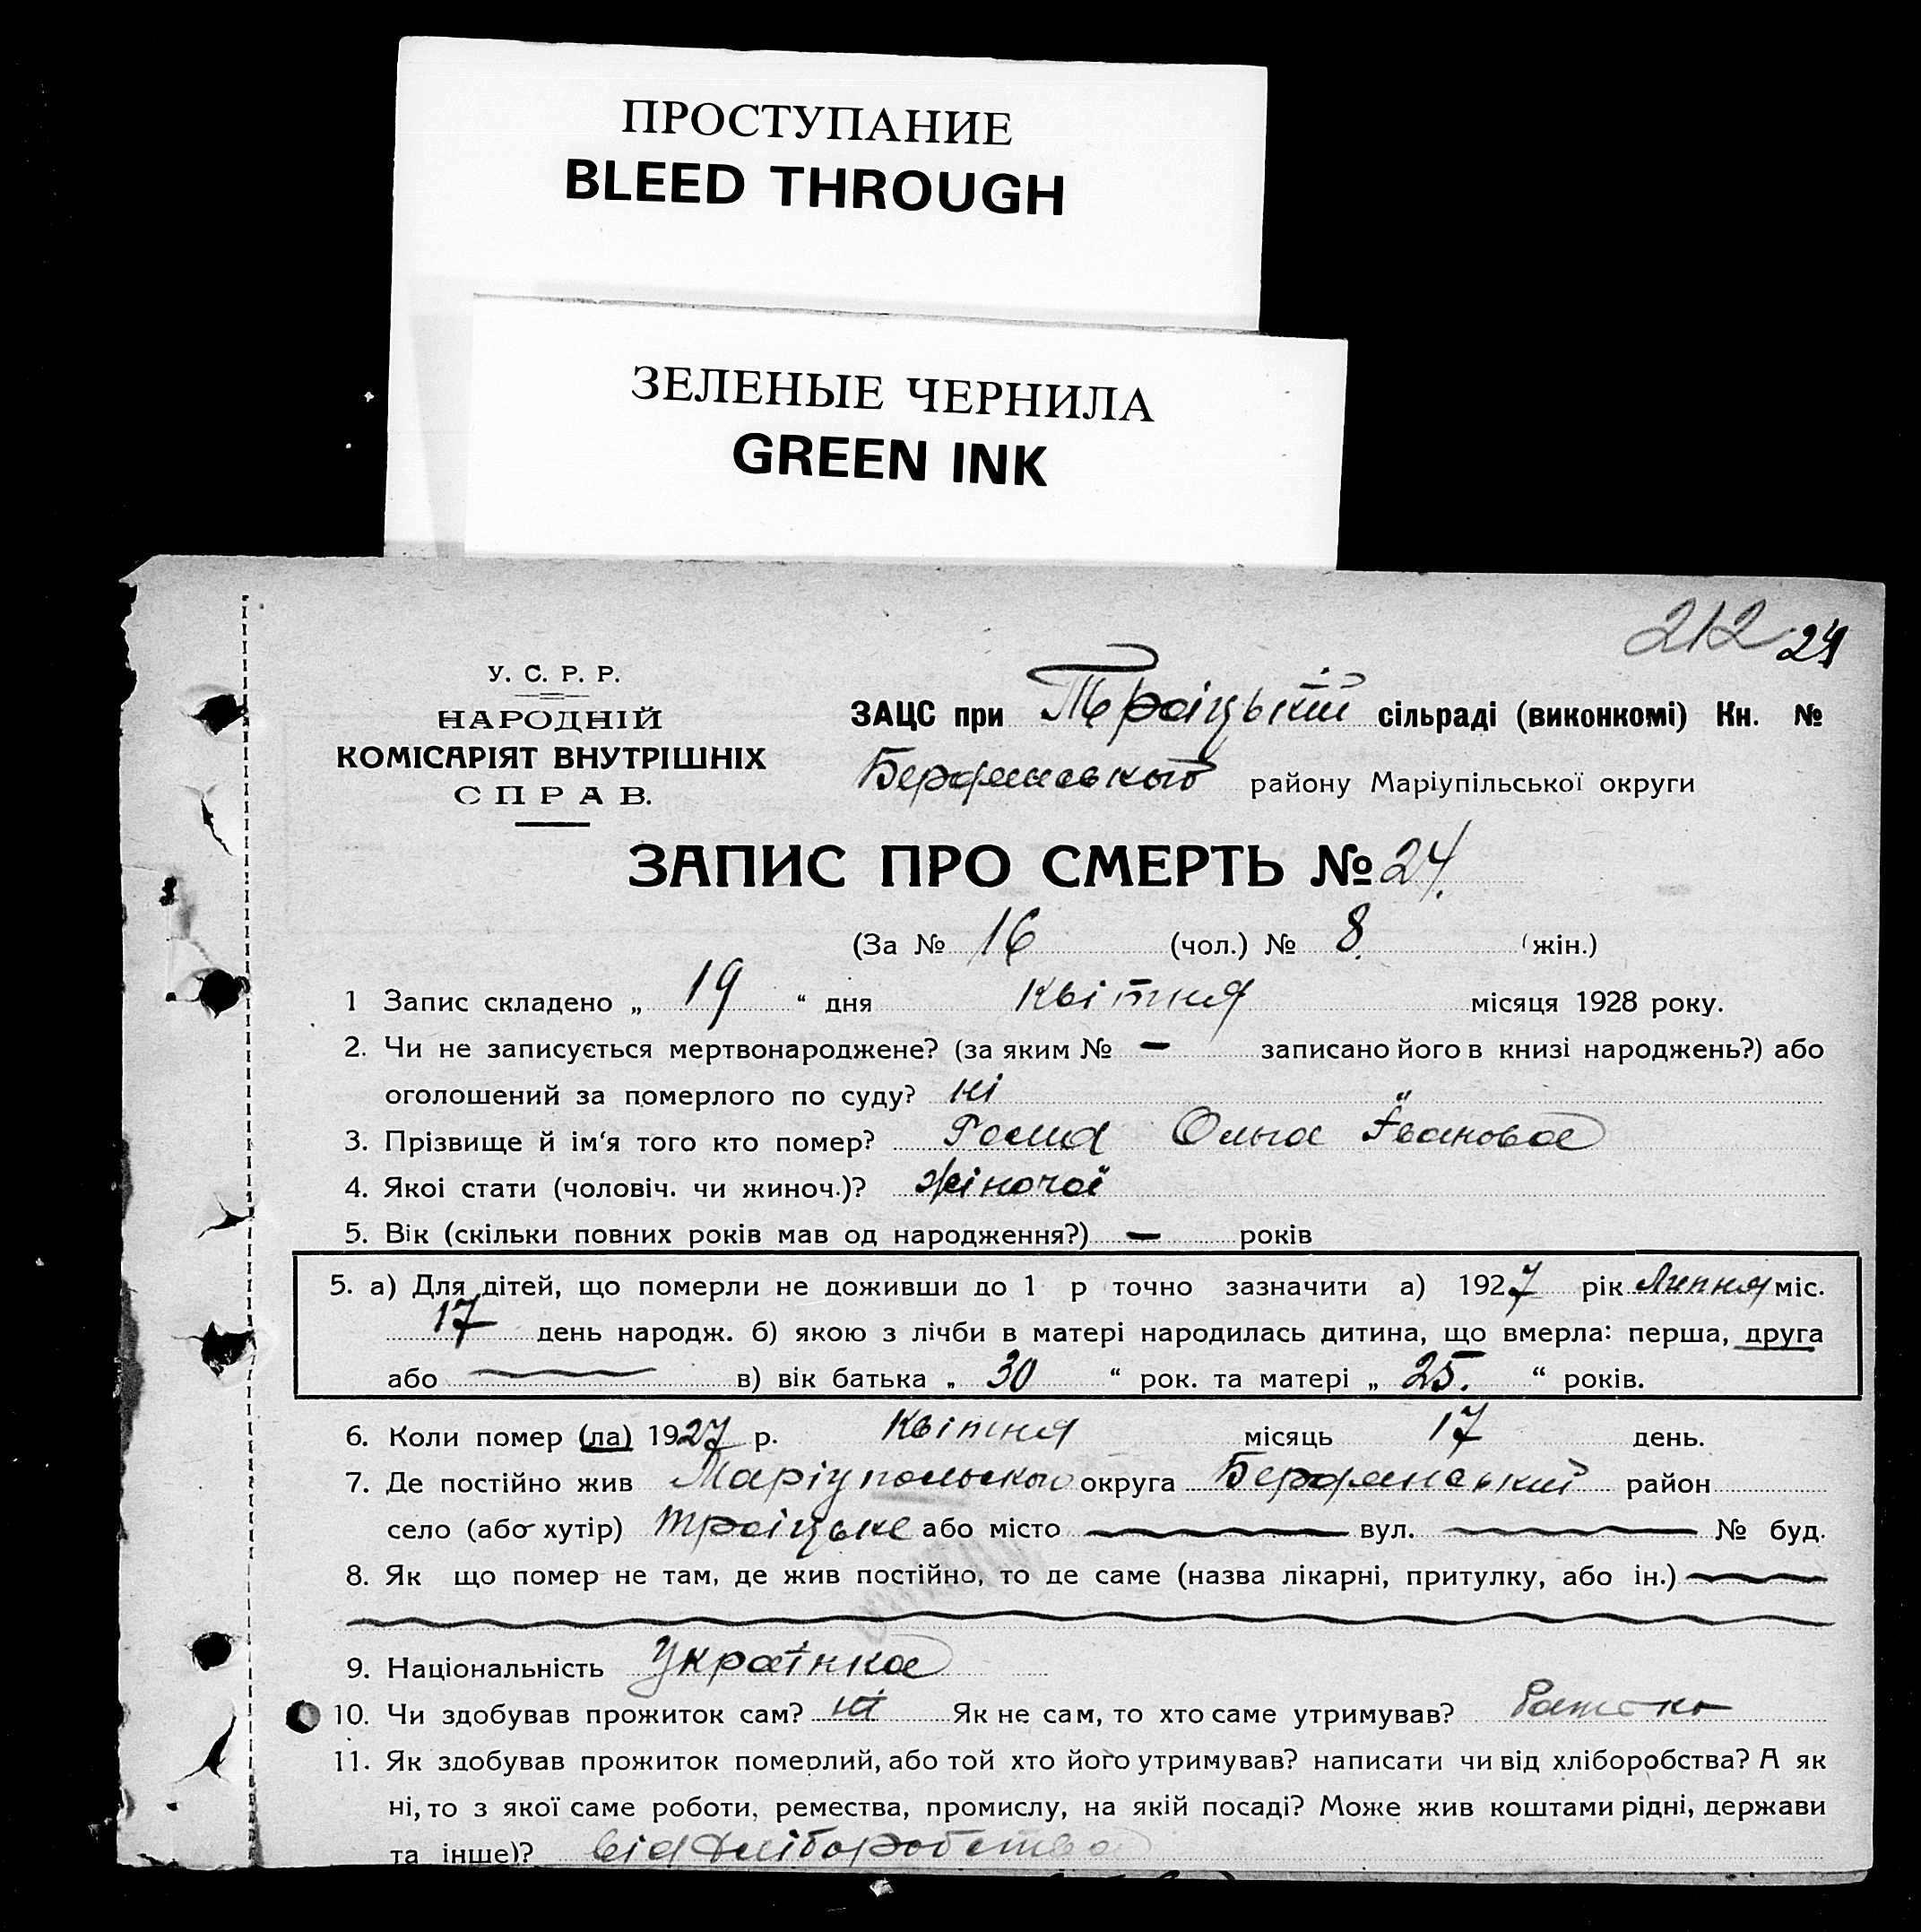 ПРОСТУПАНИЕ
BLEED THROUGH
ЗЕЛЕНЫЕ ЧЕРНИЛА
GREEN INK
212 24
У. С. Р. Р.
НАРОДНІЙ
КОМІСАРІЯТ ВНУТРІШНІХ
СПРАВ.
ЗАЦС при Троіцькій сільраді (виконкомі) Кн. №
Бердянського району Маріупільської округи
ЗАПИС ПРО СМЕРТЬ № 24.
(За № 16 (чол.) № 8. (жін.)
1 Запис складено „ 19 “ дня квітня місяця 1928 року.
2. Чи не записується мертвонароджене? (за яким № — записано його в книзі народжень?) або
оголошений за померлого по суду? ні "
3. Прізвище й ім‘я того кто помер? Ольга Іванова
4. Якоі стати (чоловіч. чи жиноч.)? жіночоі
5. Вік (скільки повних років мав од народження?) — років
5. а) Для дітей, що померли не доживши до 1 р точно зазначити а) 1927 рік Липня міс.
17 день народж. б) якою з лічби в матері народилась дитина, що вмерла: перша, друга
або в) вік батька „ 30 “ рок. та матері „ 25. “ років.
6. Коли помер (ла) 1927 р. Квітня місяць 17 день.
7. Де постійно жив Маріупольського округа Бердянський район
село (або хутір) Троіцьке або місто вул. № буд.
8. Як що помер не там, де жив постійно, то де саме (назва лікарні, притулку, або ін.)
9. Національність Українка
10. Чи здобував прожиток сам? ні Як не сам, то хто саме утримував? Батько
11. Як здобував прожиток померлий, або той хто його утримував? написати чи від хліборобства? А як
ні, то з якої саме роботи, ремества, промислу, на якій посаді? Може жив коштами рідні, держави
та інше)? від хліборобства